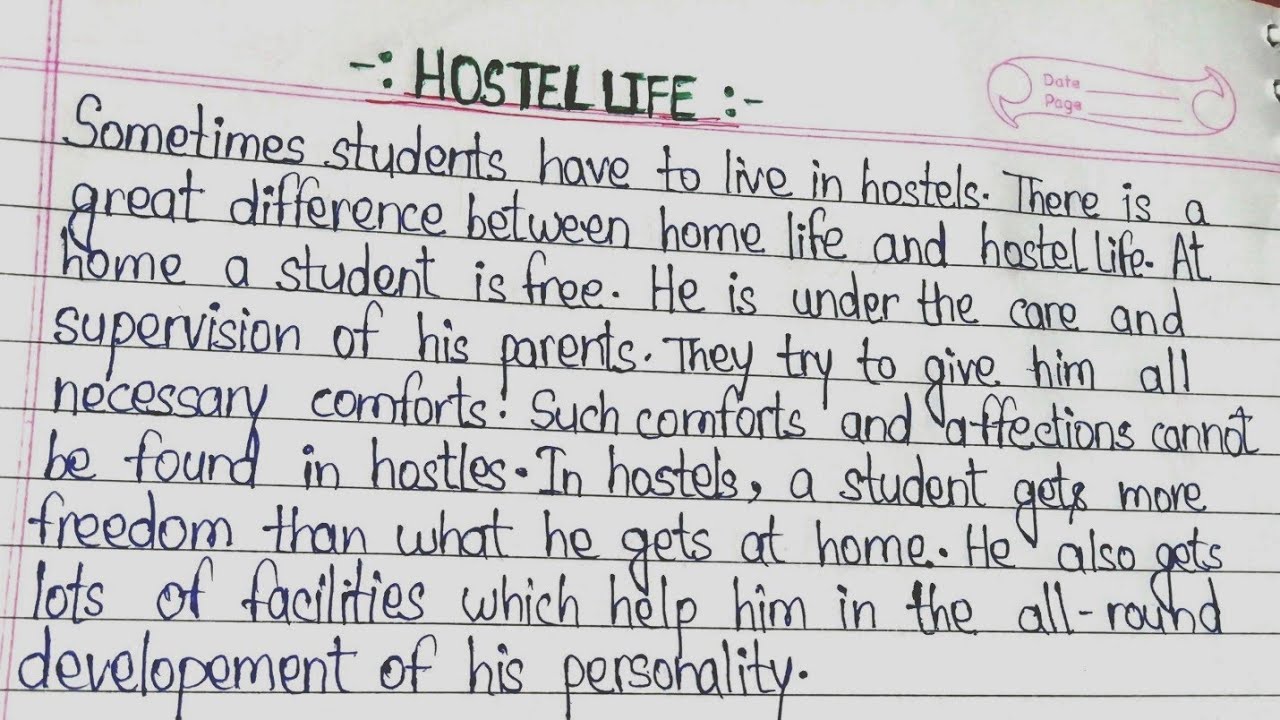 -: HOSTEL LIFE :-
Date
Page
Sometimes students have to live in hostels. There is a
great difference between home life and hostel life. At
home a student is free. He is under the care and
supervision of his parents. They try to give him all
necessary comforts. Such comforts and affections cannot
be found in hostles. In hostels, a student gets more
freedom than what he gets at home. He also gets
lots of facilities which help him in the all-round
developement of his personality.